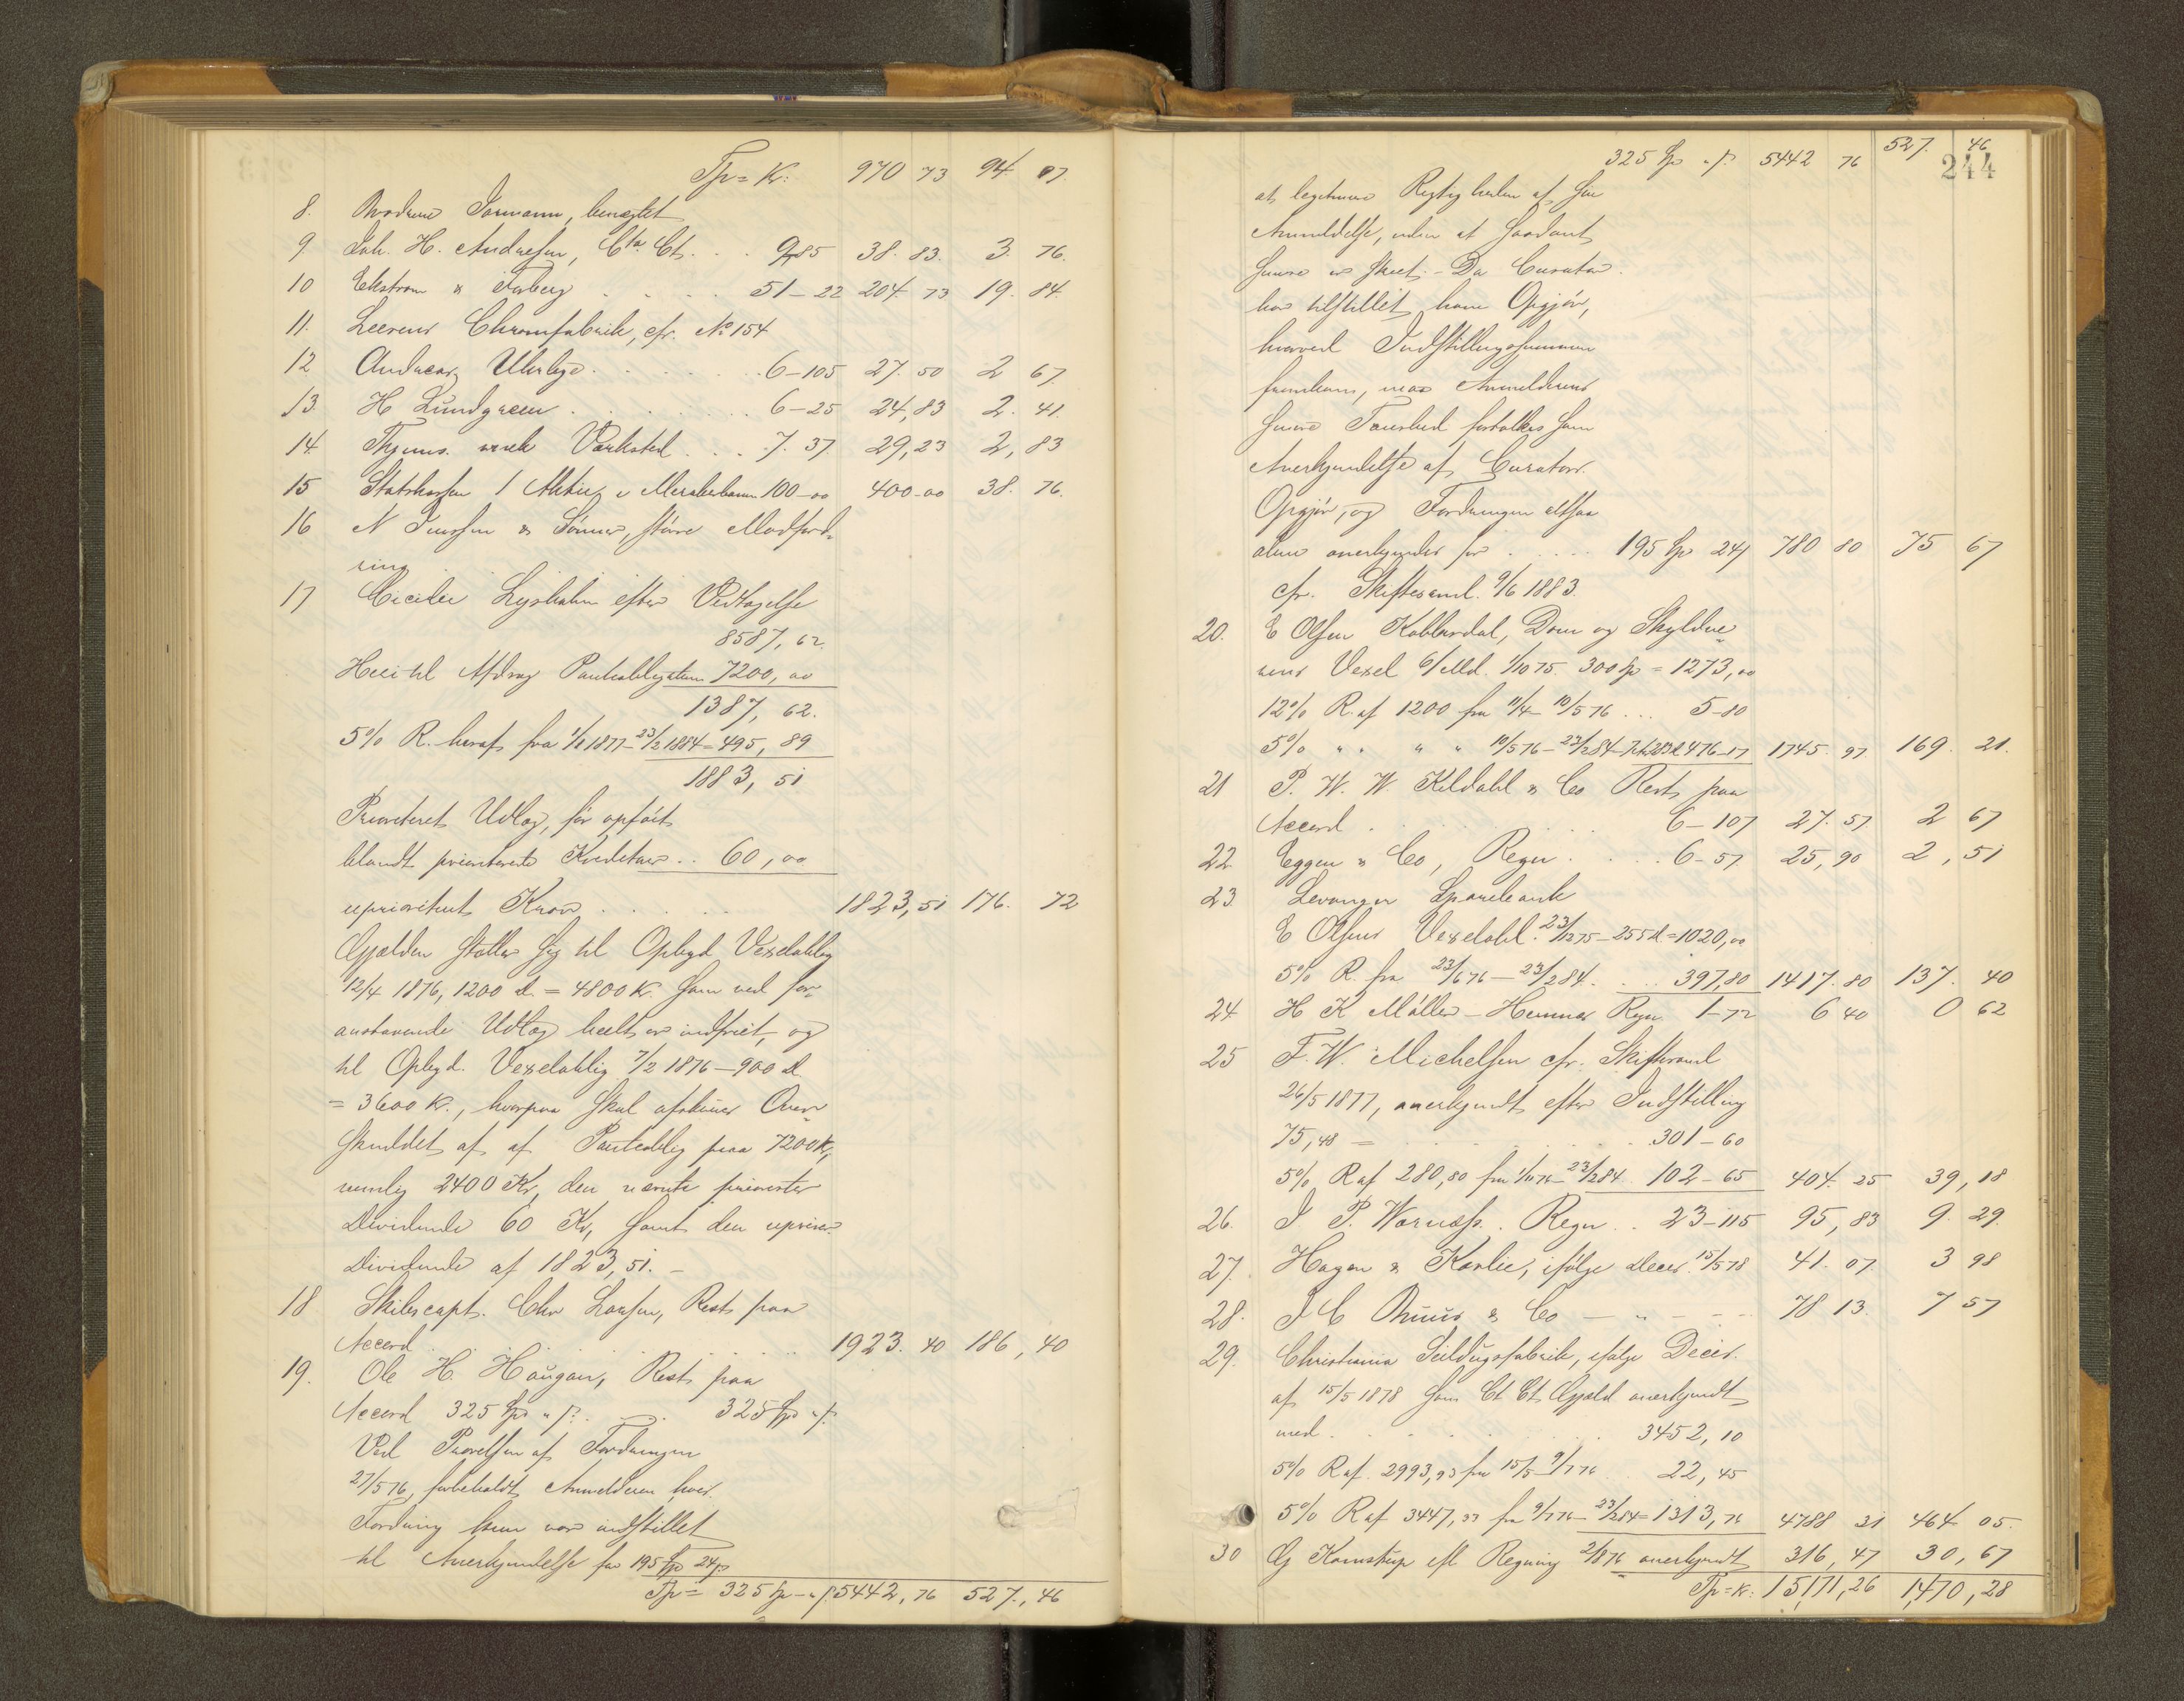 Tp = Kr. 970 73 94 07.
8. Brødrene Jarmann, benegtet
9 Joh. H. Andresen, Cta Ct. . . 9-85 38. 83. 3. 76.
10 Ekstrom & Forberg . . . . 51-22 204. 73 19. 84.
11. Leerens Chromfabrik, cfr. No 154
12 Andreas Ulseby . . . . 6-105 27. 50 2 67.
13. H Lundgreen . . . . 6-25 24,83 2. 41.
14. Thjems. mek Værksted . . . 7. 37. 29,23 2,83
15 Statskassen 1 Aktie i Merakerbanen 100-00 400-00 38. 76.
16 N Jenssen & Sønner, større Modford-
ring
17 Cicilie Lysholm efter Vedtagelse
8587, 62.
Heri til Afdrag Panteobligation 7200, 00
1387, 62.
5% R. heraf fra 1/1 1877 - 23/2 1884 = 495, 89
1883, 51
Prioriteret Udlæg, før opført
blandt prioriterede Kreditorer . . 60, 00
uprioriteret Krav . . . . 1823, 51 176. 72
Gjælden støtter sig til Opbyd. Vexeloblig
12/4 1876, 1200 d. = 4800 Kr. som ved for-
anstaaende Udlæg heelt er indfriet, og
til Opbyd. Vexeloblig 7/2 1876 - 900 d.
= 3600 Kr., hvorpaa skal afskrives Over-
skuddet af af Panteoblig paa 7200 Kr,
nemlig 2400 Kr, den nævnte prioriterte
Dividende 60 Kr, samt den uprior.
Dividende af 1823, 51. -
18 Skibscapt. Chr Larsen, Rest paa
Accord . . . . 1923. 40 186, 40
19. Ole H. Haugan, Rest paa
Accord 325 Sp " ß. . . . 325 Sp " ß.
Ved Prøvelsen af Fordringen
27/5 76, forbeholdt Anmelderen, hvis
Fordring kun var indstillet
til Anerkjendelse for 195 Sp 24 ß
Tp = 325 Sp - " ß. 5442, 76 527., 46
325 Sp " ß. 5442 76 527. 46
244
at legitimere Rigtigheden af sin
Anmeldelse, uden at saadant
senere er skeet. - Da Curator
har tilstillet ham Opgjør,
hvorved Indstillingssummen
fremkom, maa Anmelderens
senere Taushed fortolkes som
Anerkjendelse af Curators
Opgjør, og Fordringen altsaa
alene anerkjendes for . . . . 195 Sp 24 ß 780 80 75 67
cfr. Skiftesaml. 9/6 1883.
20. E Olsen Kabberdal, Dom og Skyldne-
rens Vexel 6/Md. 1/10 75. 300 Sp = 1273, 00
12% R. af 1200 fra 11/4 - 10/5 76 . . . 5-80
5% " " " " 10/5 76 - 23/2 84 476-17 1745. 97. 169. 21.
21 P. W. W. Kildahl & Co Rest paa
Accord . . . . 6-107 27. 57 2 67
22 Eggen & Co, Regn . . . . 6-57. 25, 90 2, 51
23 Levanger Sparebank
E Olsens Vexelobl. 23/12 75 - 255 d. = 1020, 00
5% R. fra 23/6 76 - 23/2 84. . . . 397,80 1417. 80 137. 40
24 H K Møller - Hemnes Regn 1-72 6 40 0 62
25 F. W. Michelsen cfr. Skiftesaml
26/5 1877, anerkjendt efter Indstilling
75, 48 = . . . . 301-60
5% R af 280,80 fra 1/11 76 - 23/2 84 102-65 404. 25 39, 18
26. J P. Wærnes . Regn . . 23-115 95, 83 9. 29.
27. Hagen & Kaslie, ifølge Decis. 15/5 78 41. 07. 3 98
28. J C Bruus & Co - " - - 78 13. 7 57
29. Christiania Seildugsfabrik, ifølge Decis.
af 15/5 1878 som Ct Ct Gjæld anerkjendt
med . . . . 3452, 10
5% R af 2993,93 fra 15/5 - 9/7 76 . . 22, 45
5% R af 3447, 37 fra 9/7 76 - 23/2 84 = 1313, 76 4788 31 464 05.
30 G Kamstrup efl Regning 2/8 76 anerkjendt 316, 47 30, 67
Tp = Kr. 15,171, 26 1,470, 28